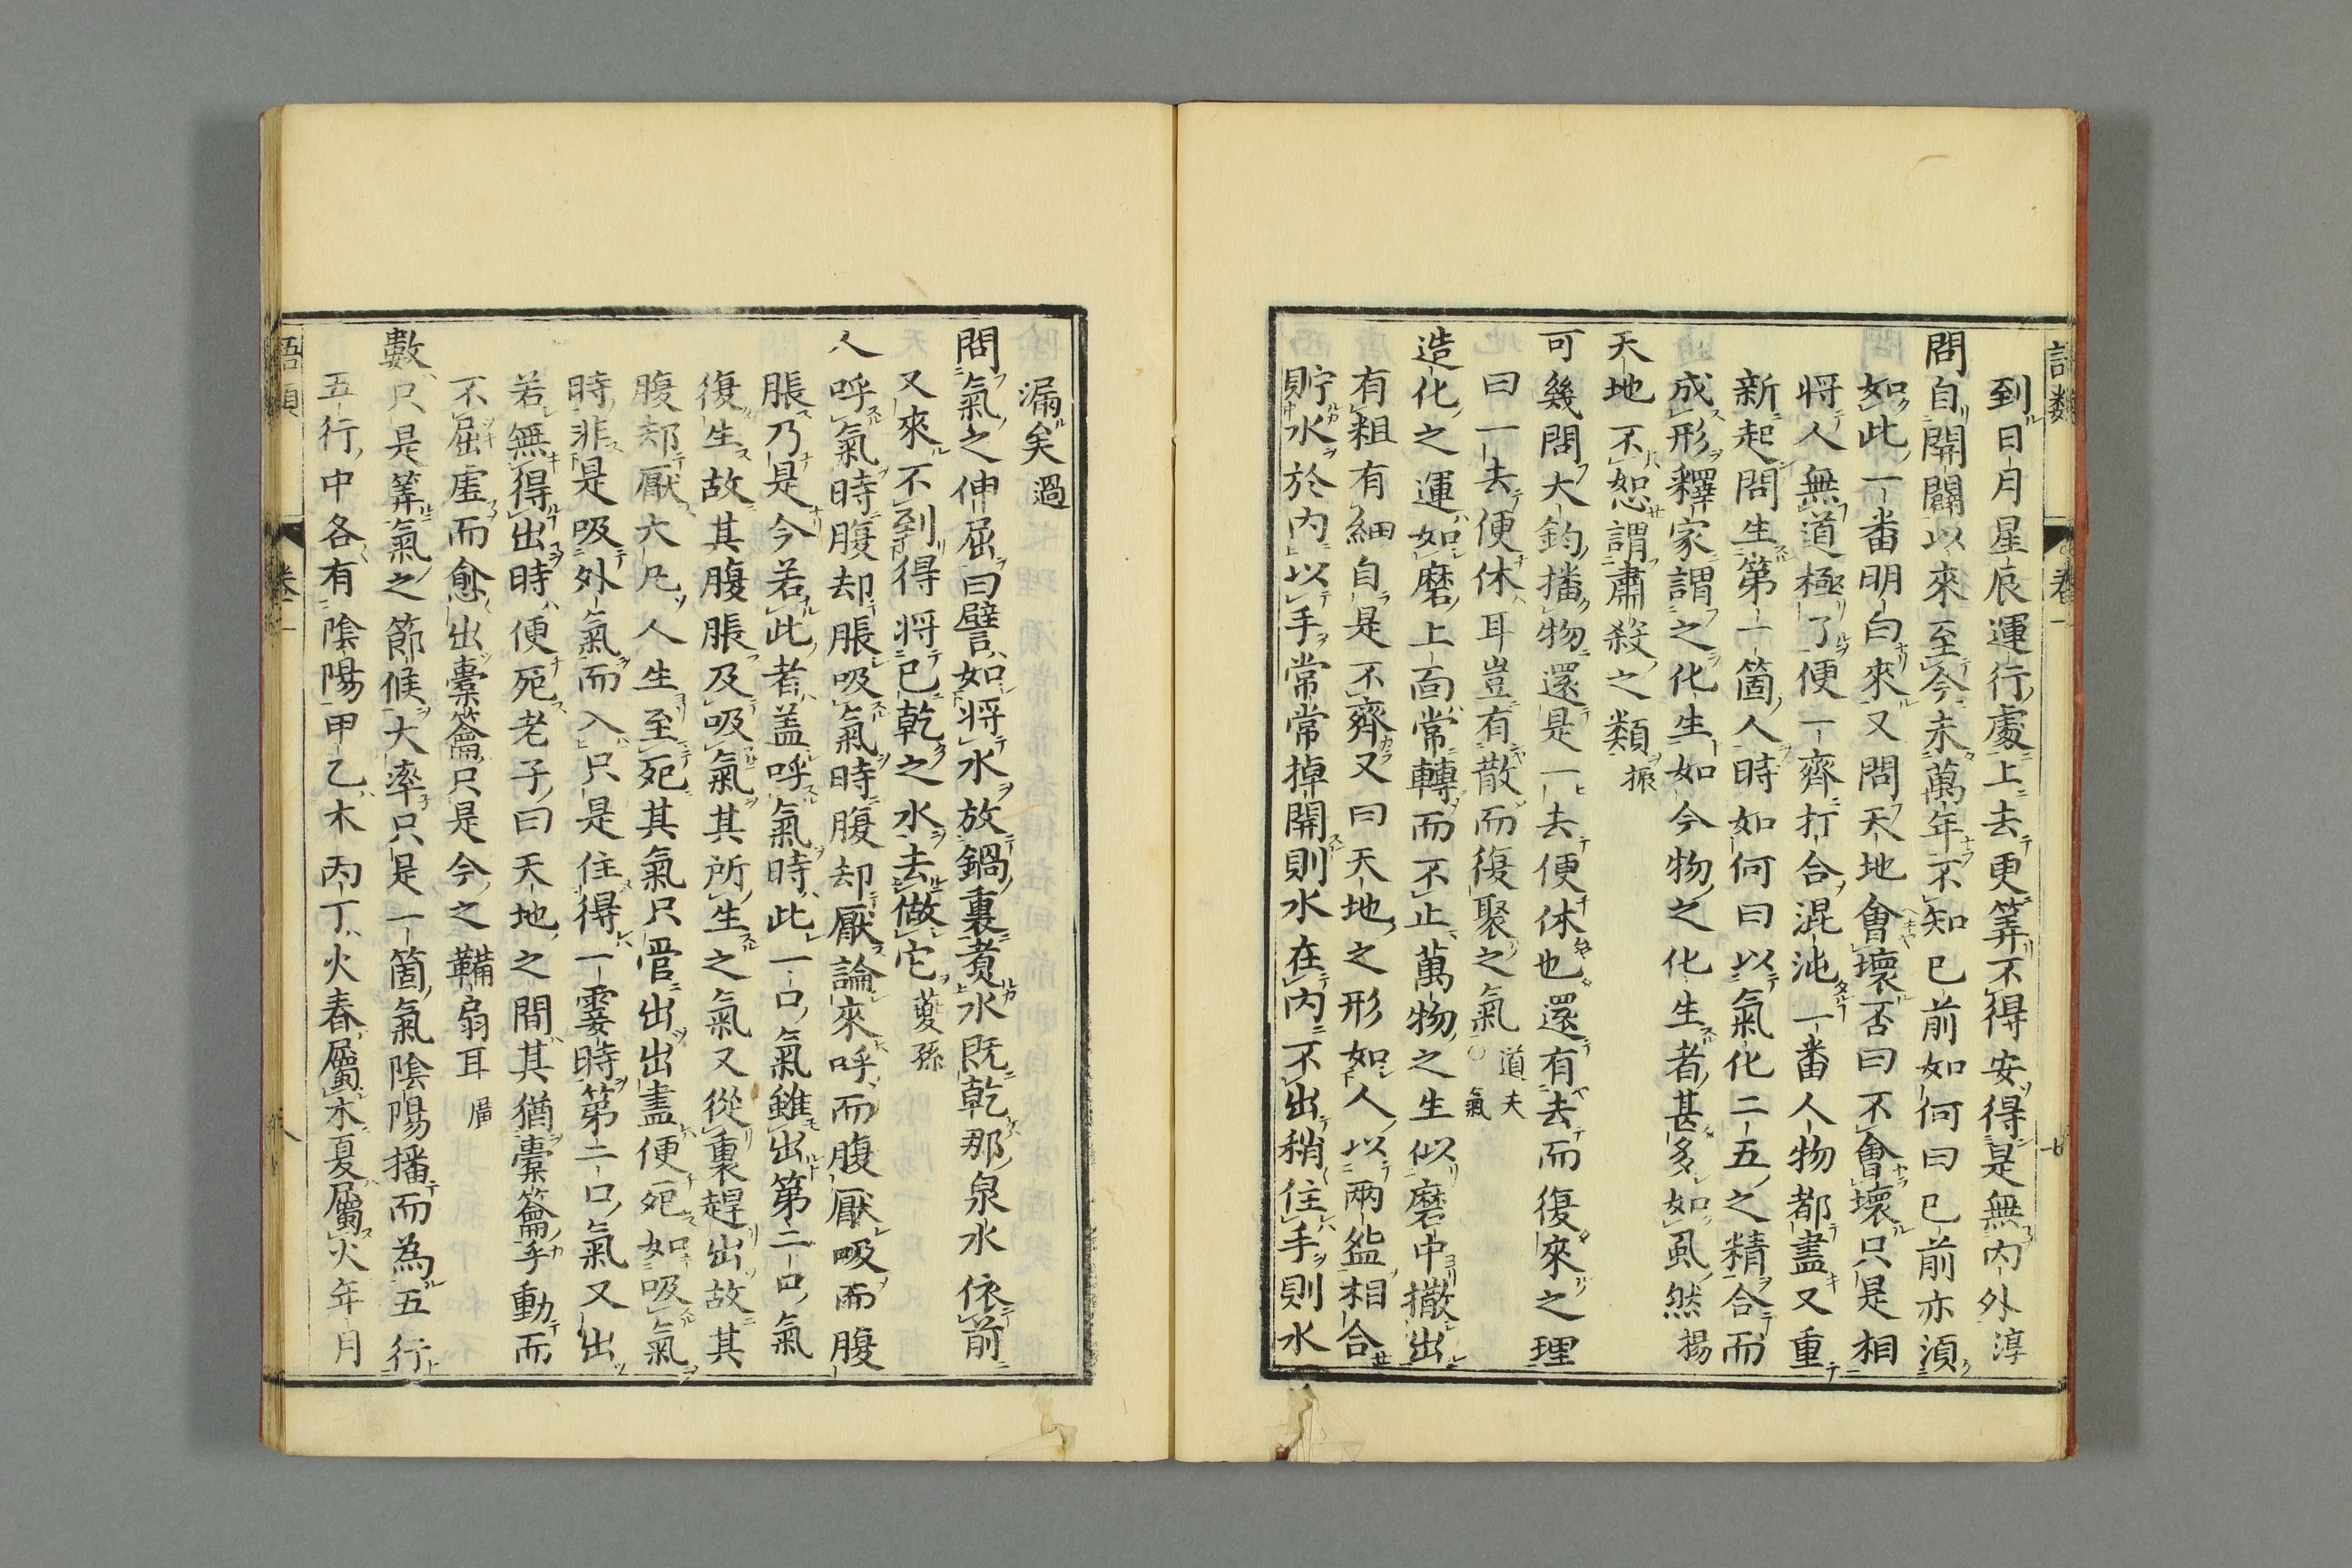 到日月星辰運行處上去更筭不得安得是無內外淳
問自開闢以來至今未萬年不知已前如何曰已前亦須
如此一番明白來又問天地會壞否曰不會壞只是相
將人無道極了便一齊打合混沌一番人物都盡又重
新起問生第一箇人時如何曰以氣化二五之精合而
成形釋家謂之化生如今物之化生者甚多如虱然揚
天地不恕謂肅殺之類振
可幾問大鈞播物還是一去便休也還有去而復來之理
曰一去便休耳豈有散而復聚之氣道夫○氣
造化之運如磨上面常轉而不止萬物之生似磨中撒出
有粗有細自是不齊又曰天地之形如人以兩盌相合
貯水於內以手常常掉開則水在內不出稍住手則水
漏矣過
問氣之伸屈曰譬如將水放鍋裏煑水既乾那泉水依前
又來不到得將已乾之水去做它夔孫
人呼氣時腹却脹吸氣時腹却厭論來呼而腹厭吸而腹
脹乃是今若此者盖呼氣時此一口氣雖出第二口氣
復生故其腹脹及吸氣其所生之氣又從裏趕出故其
腹却厭大凡人生至死其氣只管出出盡便死如吸氣
時非是吸外氣而入只是住得一霎時第二口氣又出
若無得出時便死老子曰天地之間其猶橐籥乎動而
不屈虛而愈出橐籥只是今之鞴扇耳廣
數只是筭氣之節候大率只是一箇氣陰陽播而為五行
五行中各有陰陽甲乙木丙丁火春屬木夏屬火年月
語類
卷一
八